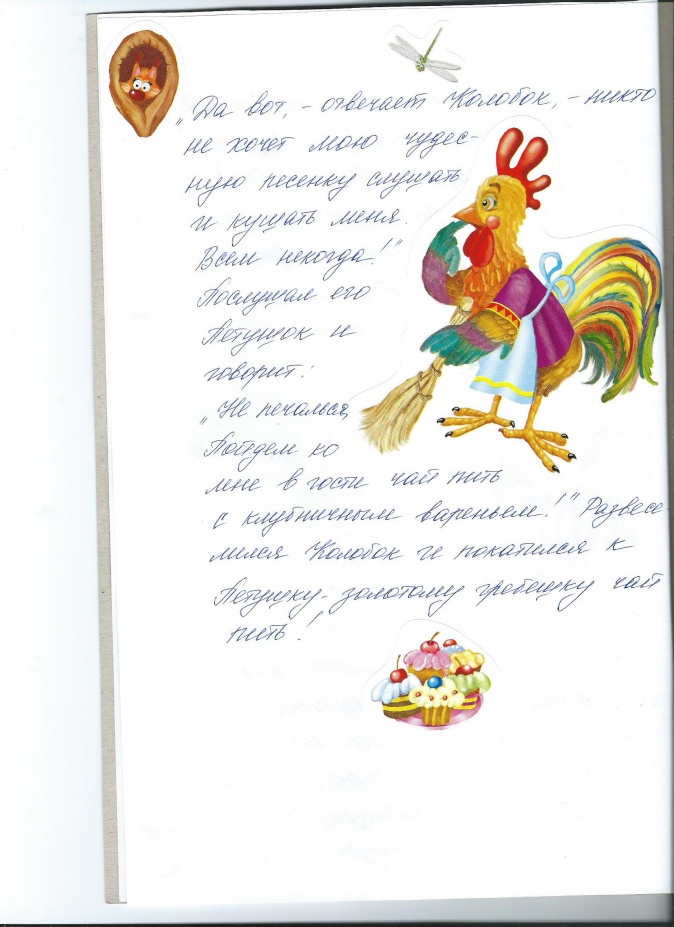 „Да вот, - отвечает Колобок, - никто
не хочет мою чудес-
ную песенку слушать
и кушать меня.
Всем некогда!"
Послушал его
Петушок и
говорит:
„Не печалься,
Пойдем ко
мне в гости чай пить
с клубничным вареньем!" Развесе-
лился Колобок и покатился к
Петушку - золотому гребешку чай
пить!